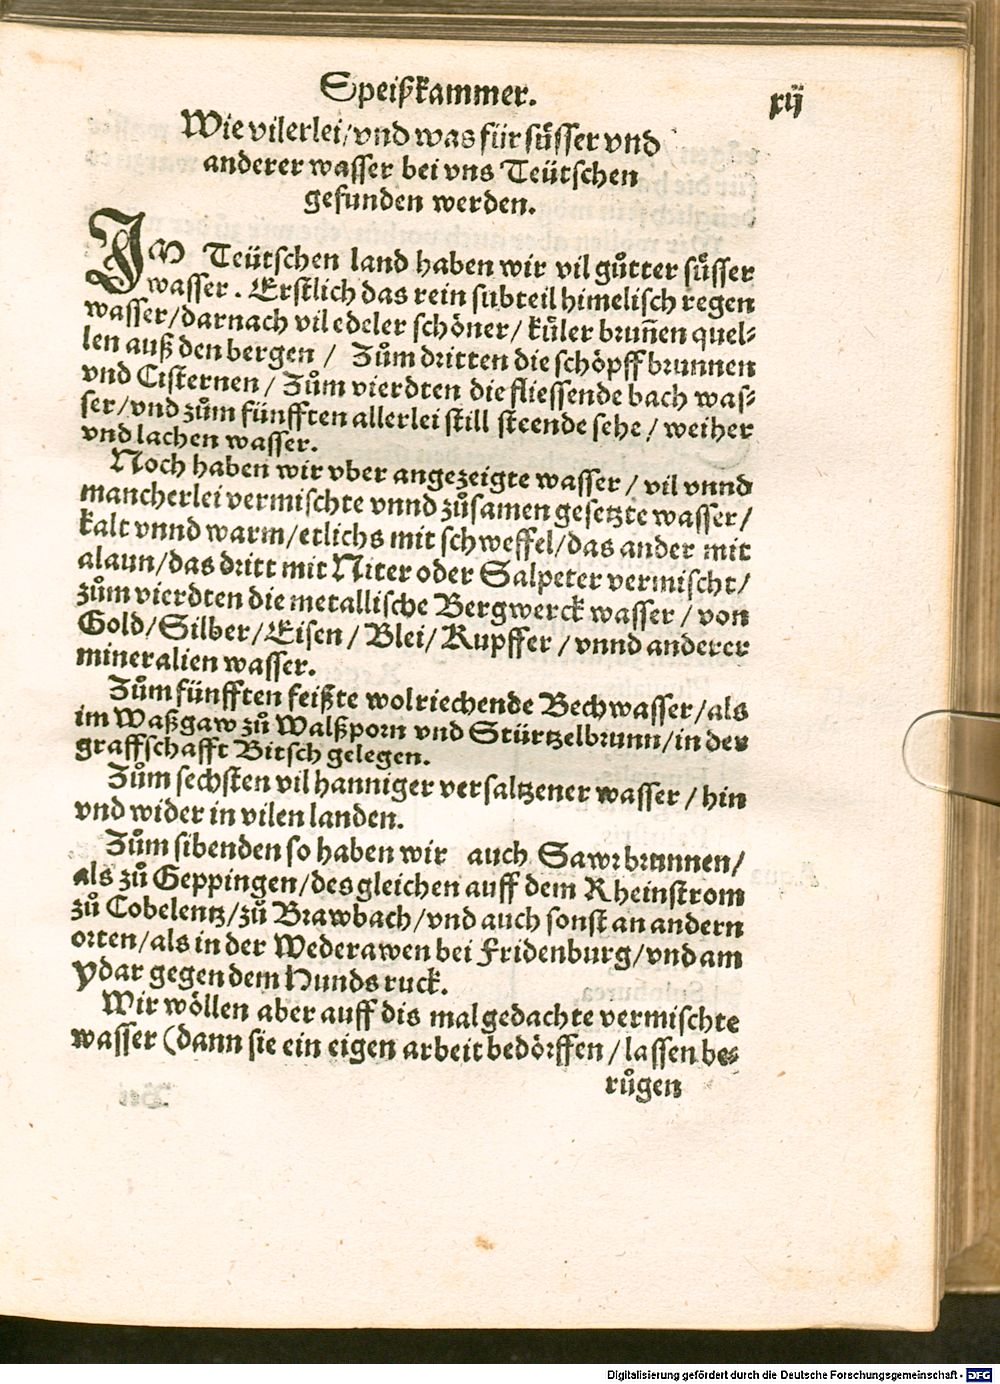 Speißkammer.
xij
Wie vilerlei/vnd was für süsser vnd
anderer wasser bei vns Teütschen
gefunden werden.
IM Teütschen land haben wir vil gůtter süsser
wasser. Erstlich das rein subteil himelisch regen
wasser/darnach vil edeler schöner/ küler brunnen quel-
len auß den bergen / Zům dritten die schöpff brunnen
vnd Cisternen/ Zům vierdten die fliessende bach was-
ser/vnd zům fünfften allerlei still steende sehe/ weiher
vnd lachen wasser.
Noch haben wir vber angezeigte wasser/ vil vnnd
mancherlei vermischte vnnd zůsamen gesetzte wasser/
kalt vnnd warm/etlichs mit schweffel/das ander mit
alaun/das dritt mit Niter oder Salpeter vermischt/
zům vierdten die metallische Bergwerck wasser/ von
Gold/Silber/Eisen/ Blei/ Kupffer / vnnd anderer
mineralien wasser.
Zům fünfften feißte wolriechende Bechwasser/als
im Waßgaw zů Walßporn vnd Stürtzelbrunn/in der
graffschafft Bitsch gelegen.
Zům sechsten vil hanniger versaltzener wasser/ hin
vnd wider in vilen landen.
Zům sibenden so haben wir auch Sawrbrunnen/
als zů Geppingen/desgleichen auff dem Rheinstrom
zů Cobelentz/zů Brawbach/vnd auch sonst an andern
orten/als in der Wederawen bei Fridenburg/vnd am
ydar gegen dem Hundsruck.
Wir wöllen aber auff dis mal gedachte vermischte
wasser (dann sie ein eigen arbeit bedörffen/lassen be-
růgen
Digitalisierung gefördert durch die Deutsche Forschungsgemeinschaft - DFG